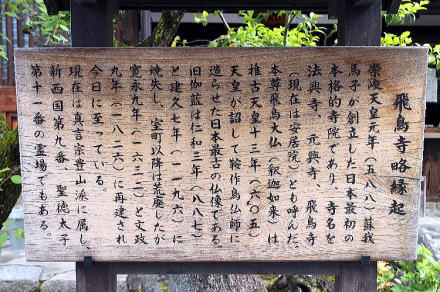 飛鳥寺略縁起
崇峻天皇元年(五八八)蘇我
馬子が創立した日本最初の
本格的寺院であり、寺名を
法興寺、元興寺、飛鳥寺
(現在は安居院)とも呼んだ。
本尊飛鳥大仏(釈迦如来)は
推古天皇十三年(六〇五)
天皇が詔して鞍作鳥仏師に
造らせた日本最古の仏像である
旧伽藍は仁和三年(八八七)
と建久七年(一一九六)に
焼失し、室町以降は荒廃したが
寛永九年(一六三二)と文政
九年(一八二六)に再建され
今日に至っている。
現在は真言宗豊山派に属し、
新西国第九番、聖徳太子
第十一番の霊場でもある。